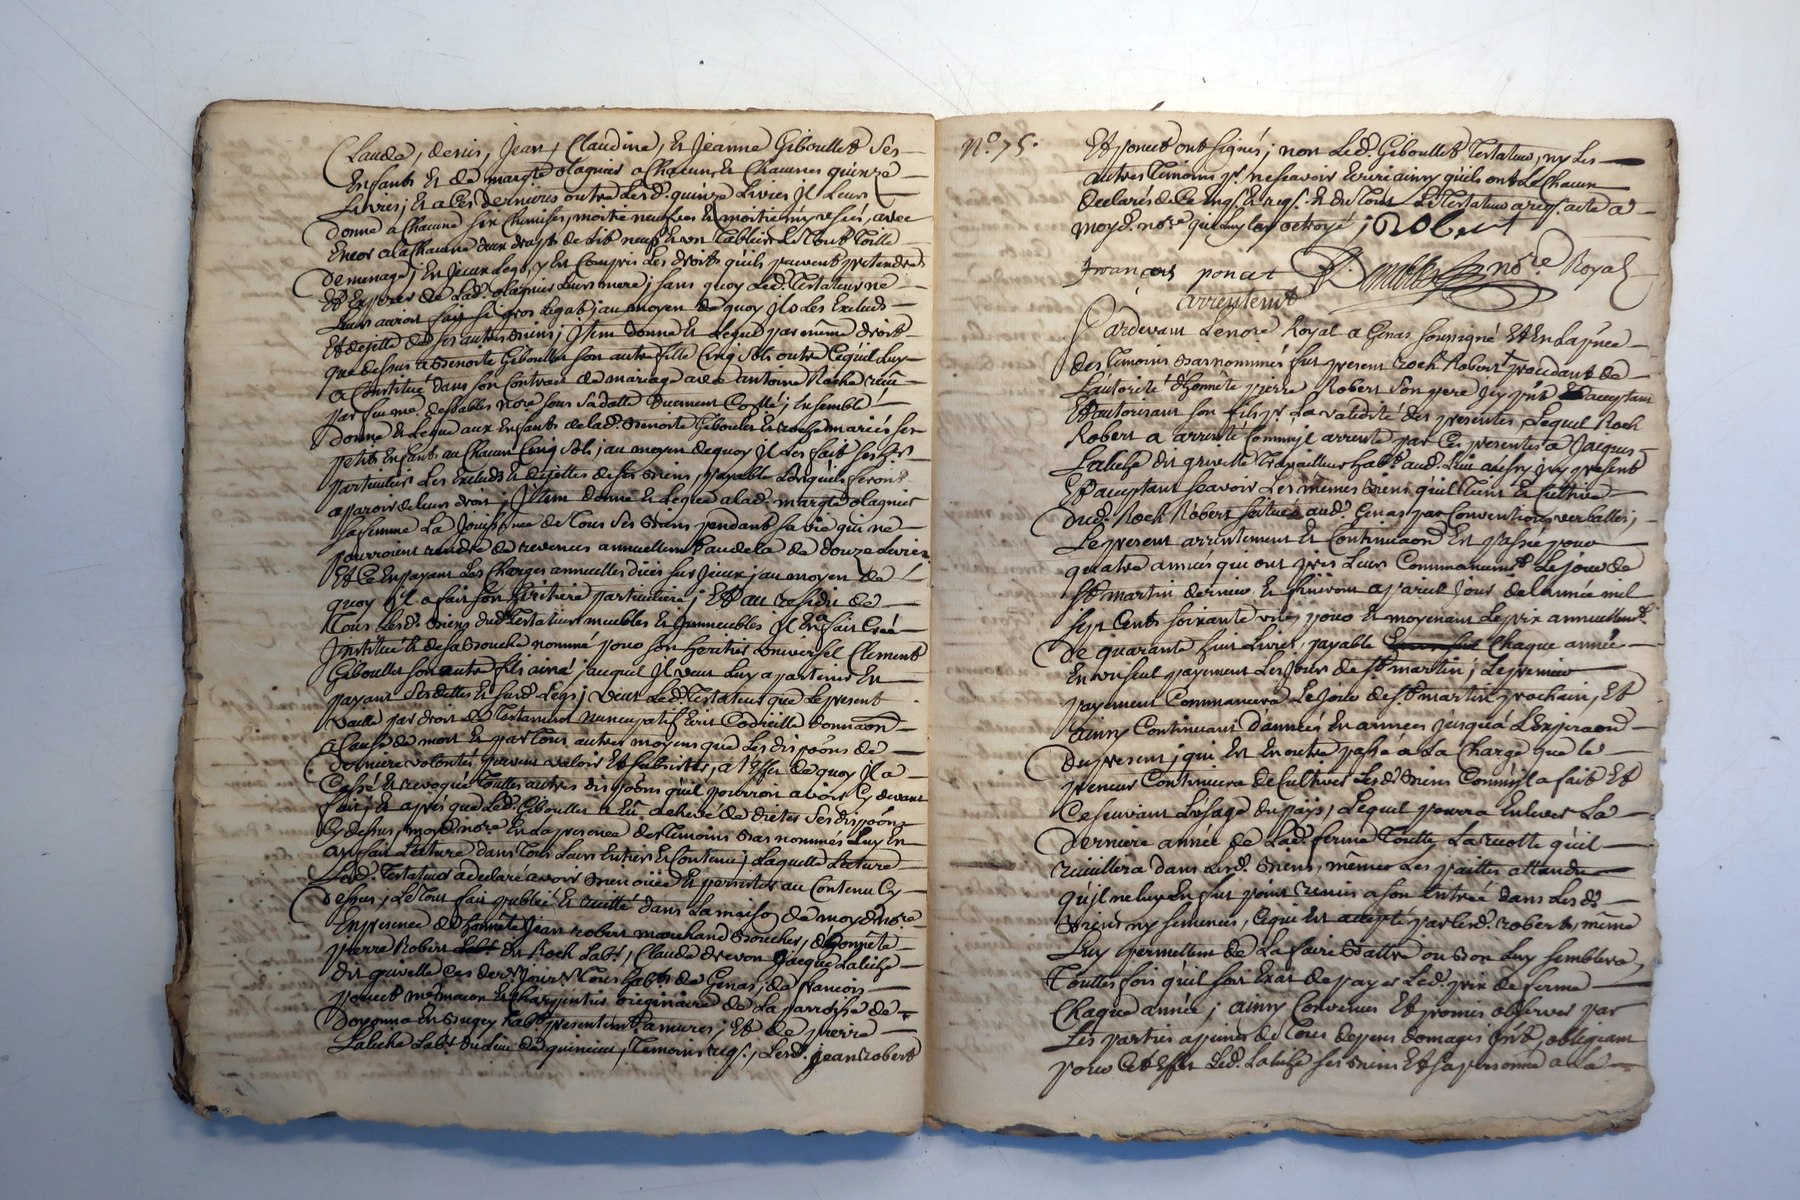 Claude, denis, Jean, Claudine, Et Jeanne Giboullet Ses
Enfants Et de margte olagnier a Chacuns Et Chacunes quinze
Livres; Et a Ces dernieres outre Lesd. quinze Livres Jl Leur
donne a Chacune six Chemises, moitié neufves Et moitié my usées, avec
Encor a Chacune deux draps de Lit neufs Et un Tablier Le Tout Toille
de menage; En Jceux Legs, y En Compris Les droits quils peuvent pretendre
Et Esperer de Lad. olagnier Leur mere; sans quoy Led. Testateur ne
Leur auroit fait si gros Legat; au moyen de quoy Jl Les Exclud
Et dejette de ses autres Biens; Jtem donne Et Legue par même droit
que dessus a Benoite Giboullet son autre fille Cinq sols outre Ce quil Luy
a Constitué dans son Contract de mariage avec antoine Roche reçu
par feu me. desables nore sous sa datte duement Collé; Ensemble
donne Et Legue aux Enfants de lad. Benoite Giboullet Et Roche mariés ses
petits Enfants au Chacun Cinq sols; au moyen de quoy Jl Les fait ses hrs
particuliers Les Exclud Et dejettes de ses Biens, payable Lorsquils seront
apparoir de leur droit; Jtem donne Et Legue a lad. margte olagnier
sa femme La Jouissance de Tous Ses Biens pendant sa vie qui ne
pourroient rendre de revenus annuellemt. au dela de douze Livres
Et Ce En payant Les Charges annuelles dües sur Jceux; au moyen de
quoy Jl a fait son heritiere particuliere; Et au residu de
Tous Lesd. Biens dud. Testateur meubles Et Jmmeubles Jl En a fait Créé
Jnstitué Et de sa Bouche nommé pour son heritier Universel Clement
Giboullet son autre fils ainé; auquel Jl veut Luy apartenir En
payant Ses dettes Et susd. Legs; veut Led. Testateur que Le present
vaille par droit de Testament nuncupatif Ecrit Codicille donnaon
a Cause de mort Et par Tous autres moyens que Les dispoons de
derniere volontés peuvent valoir Et subsister, a l'effet de quoy Jl a
Cassé Et revoqué Touttes autres dispoons quil pourroit avoir Cy devant
fait; Et après que Led. Giboullet a Eu achevé de dicter Ses dispoons
Cy dessus, moyd. nore En La presence des Temoins Bas nommés Luy En
ay fait Lecture dans Tout Leur Entier En Contenu; Laquelle Lecture
Led. Testateur a declaré avoir Bien ouïe Et persister au Contenu Cy
dessus, Le Tout fait publié Et recitté dans La maison de moyd. nore
En presence de honnête Jean robert marchand Boucher, d'honnête
pierre Robert Et Roch Labr, Claude drevon Jacque Laliche
dit gruvelle Tous habts de Genas, de francois
poncet me maçon Et Charpentier originaire de La parroisse de
doyonna En Bugey habt presentemt a mures; Et de pierre
Laliche Labr. du Lieu de quincieu, Temoins reqs., Lesd. jean robert
N.º 75.
Et poncet ont signés; non Led. Giboullet Testateur, ny Les
autres Temoins pr. ne scavoir Ecrire ainsy quils ont de Chacun
declarés de Ce Enqs. Et reqs. Et du Tout Le Testateur a reqs. acte a
moyd. nore. qui luy lay octroyé; Robert
francois poncet nore. Royal
arrentemt
Pardevant Le nore Royal a Genas soussigné Et En La pnce
des Temoins Bas nommés fut present roch Robert procedant de
Lautorité d'honnete pierre Robert Son pere Jcy pnt Et acceptant
Et autorisant son fils pr. La validité des presentes, Lequel Roch
Robert a arrenté Comm'jl arrente par Ces presentes a Jacques
Laliche dit gruvelle Travailleur habt. aud. Lieu aussy Jcy present
Et acceptant scavoir Les mêmes Biens quil Tient Et Cultive
dud. Roch Robert scitués aud. Genas par Conventions verballes;
Le present arrentement Et Continuaon Est passé pour
quatre années qui ont pris Leurs Commancemt. Le jour de
St. martin dernier Et finiront a pareil Jour de lannée mil
sept Cents soixante pour Et moyenant Le prix annuellemt.
de quarante huit Livres, payable Chaque année
En un seul payement Les Jours de St. martin; Le premier
payement Commancera Le Jour de St. martin prochain, Et
ainsy Continuant d'années En années jusqu'a L'Expiraon
du present; qui Est En outre passé a La Charge que Le
preneur Continuera de Cultiver Lesd. Biens Comm'jl a fait Et
Ce suivant L'usage du païs, Lequel pourra Enlever La
derniere année de Lad. ferme Toutte La recolte quil
recueillera dans Lesd. Biens, mêmes Les pailles attendu
quil ne luy En fut point remis a son Entrée dans Lesd.
Biens ny semences, Ce qui Est accepté par Lesd. robert, même
Luy permettent de La faire Battre ou Bon Luy semblera,
Touttes fois quil soit Exat de payer Led. prix de ferme
Chaque année; ainsy Convenu Et promis observer par
Les parties a peines de Tous depens domages Jnts, obligeant
pour Cet Effet Led. Laliche ses Biens Et sa personne a La